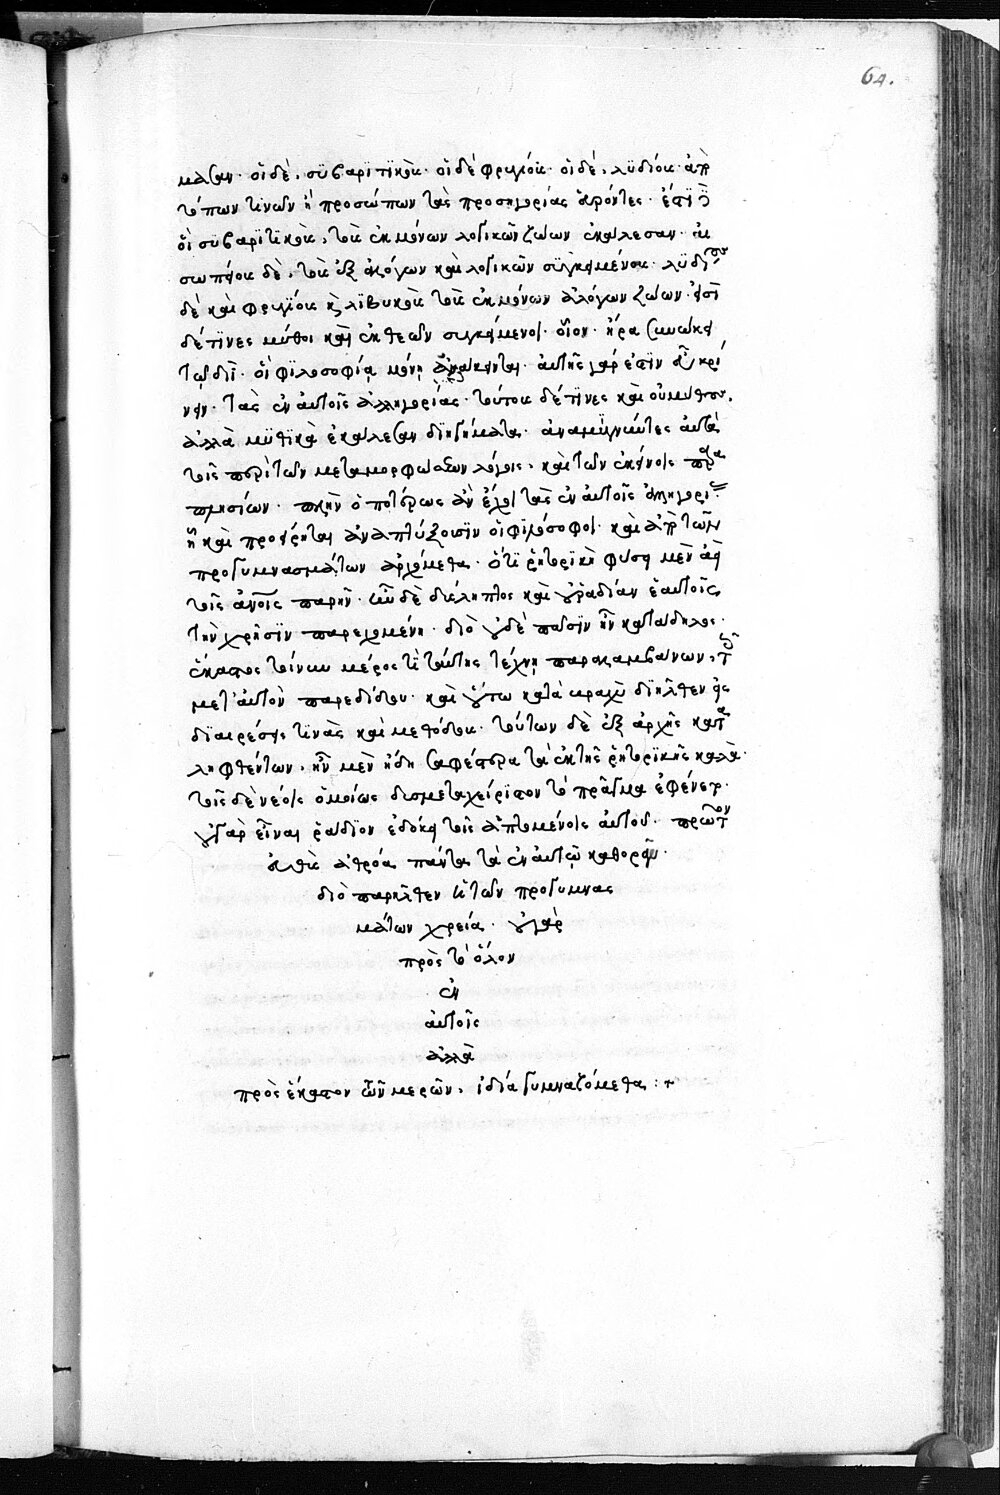 64.
μασαν· οἱ δὲ, συβαριτικοὺς· οἱ δὲ φρυγίους· οἱ δὲ, λυδίους· ἀπὸ
τόπων τινῶν ἢ προσώπων τὰς προσηγορίας ἀρύοντες·
οἱ συβαριτικοὺς, τοὺς ἐκ μόνων λογικῶν ζώων ἐκάλεσαν· αἰ
σωπείους δὲ, τοὺς ἐξ ἀλόγων καὶ λογικῶν συγκειμένους· λυδίους
δὲ καὶ φρυγίους καὶ λιβυκοὺς τοὺς ἐκ μόνων ἀλόγων ζώων· εἰσὶ
δέ τινες μῦθοι καὶ ἐκ θεῶν συγκείμενοι· οἷον· ἥρα συνῴκει
τῷ διΐ· οἳ φιλοσοφίᾳ μόνῃ ἀνάκεινται· αὐτῆς γάρ ἐστιν εὐκρι
νεῖν· τὰς ἐν αὐτοῖς ἀλληγορίας· τούτους δέ τινες καὶ οὐ μύθους,
ἀλλὰ μυθικὰ ἐκάλεσαν διηγήματα· ἀναμιγνύντες αὐτὰ
τοῖς περὶ τῶν μεταμορφώσεων λόγοις, καὶ τῶν ἐκείνοις παρα
πλησίων· πλὴν ὁποτέρως ἂν ἔχοι τὰς ἐν αὐτοῖς ἀλληγορίας
ᾗ καὶ προείρηται ἀναπτύξουσιν οἱ φιλόσοφοι· καὶ ἀπὸ τῶν
προγυμνασμάτων ἀρχόμεθα· ὅτι ῥητορικὴ φύσει μὲν
τοῖς ἀνοις παρῆν· διέληπτος καὶ ἑαυτοῖς
τὴν χρῆσιν παρεχομένη· διὸ οὐδὲ πᾶσιν ἦν κατάδηλος·
ἕκαστος τοίνυν μέρος τι ταύτης τέχνῃ παραλαμβάνων, τοῖς
μετ' αὐτὸν παρεδίδου· καὶ οὕτω κατὰ μικρὸν διῆλθεν εἰς
διαιρέσεις τινὰς καὶ μεθόδους· τούτων δὲ ἐξ ἀρχῆς κατα
ληφθέντων, ἦν μὲν ἤδη σαφέστερα τὰ ἐκ τῆς ῥητορικῆς καλά·
τοῖς δὲ νέοις ὁμοίως δυσμεταχείριστον τὸ πρᾶγμα ἐφαίνετο·
οὐ γὰρ εἶναι ῥᾴδιον ἐδόκει τοῖς ἁπτομένοις αὐτοῦ· πρῶτον
εὐθὺς ἀθρόα πάντα τὰ ἐν αὐτῷ καθορᾶν·
διὸ παρῆλθεν ἡ τῶν προγυμνασ
μάτων χρεία· οὐ γὰρ
πρὸς τὸ ὅλον
ἐν
αὐτοῖς
ἀλλὰ
πρὸς ἕκαστον τῶν μερῶν, ἰδίᾳ γυμναζόμεθα : +